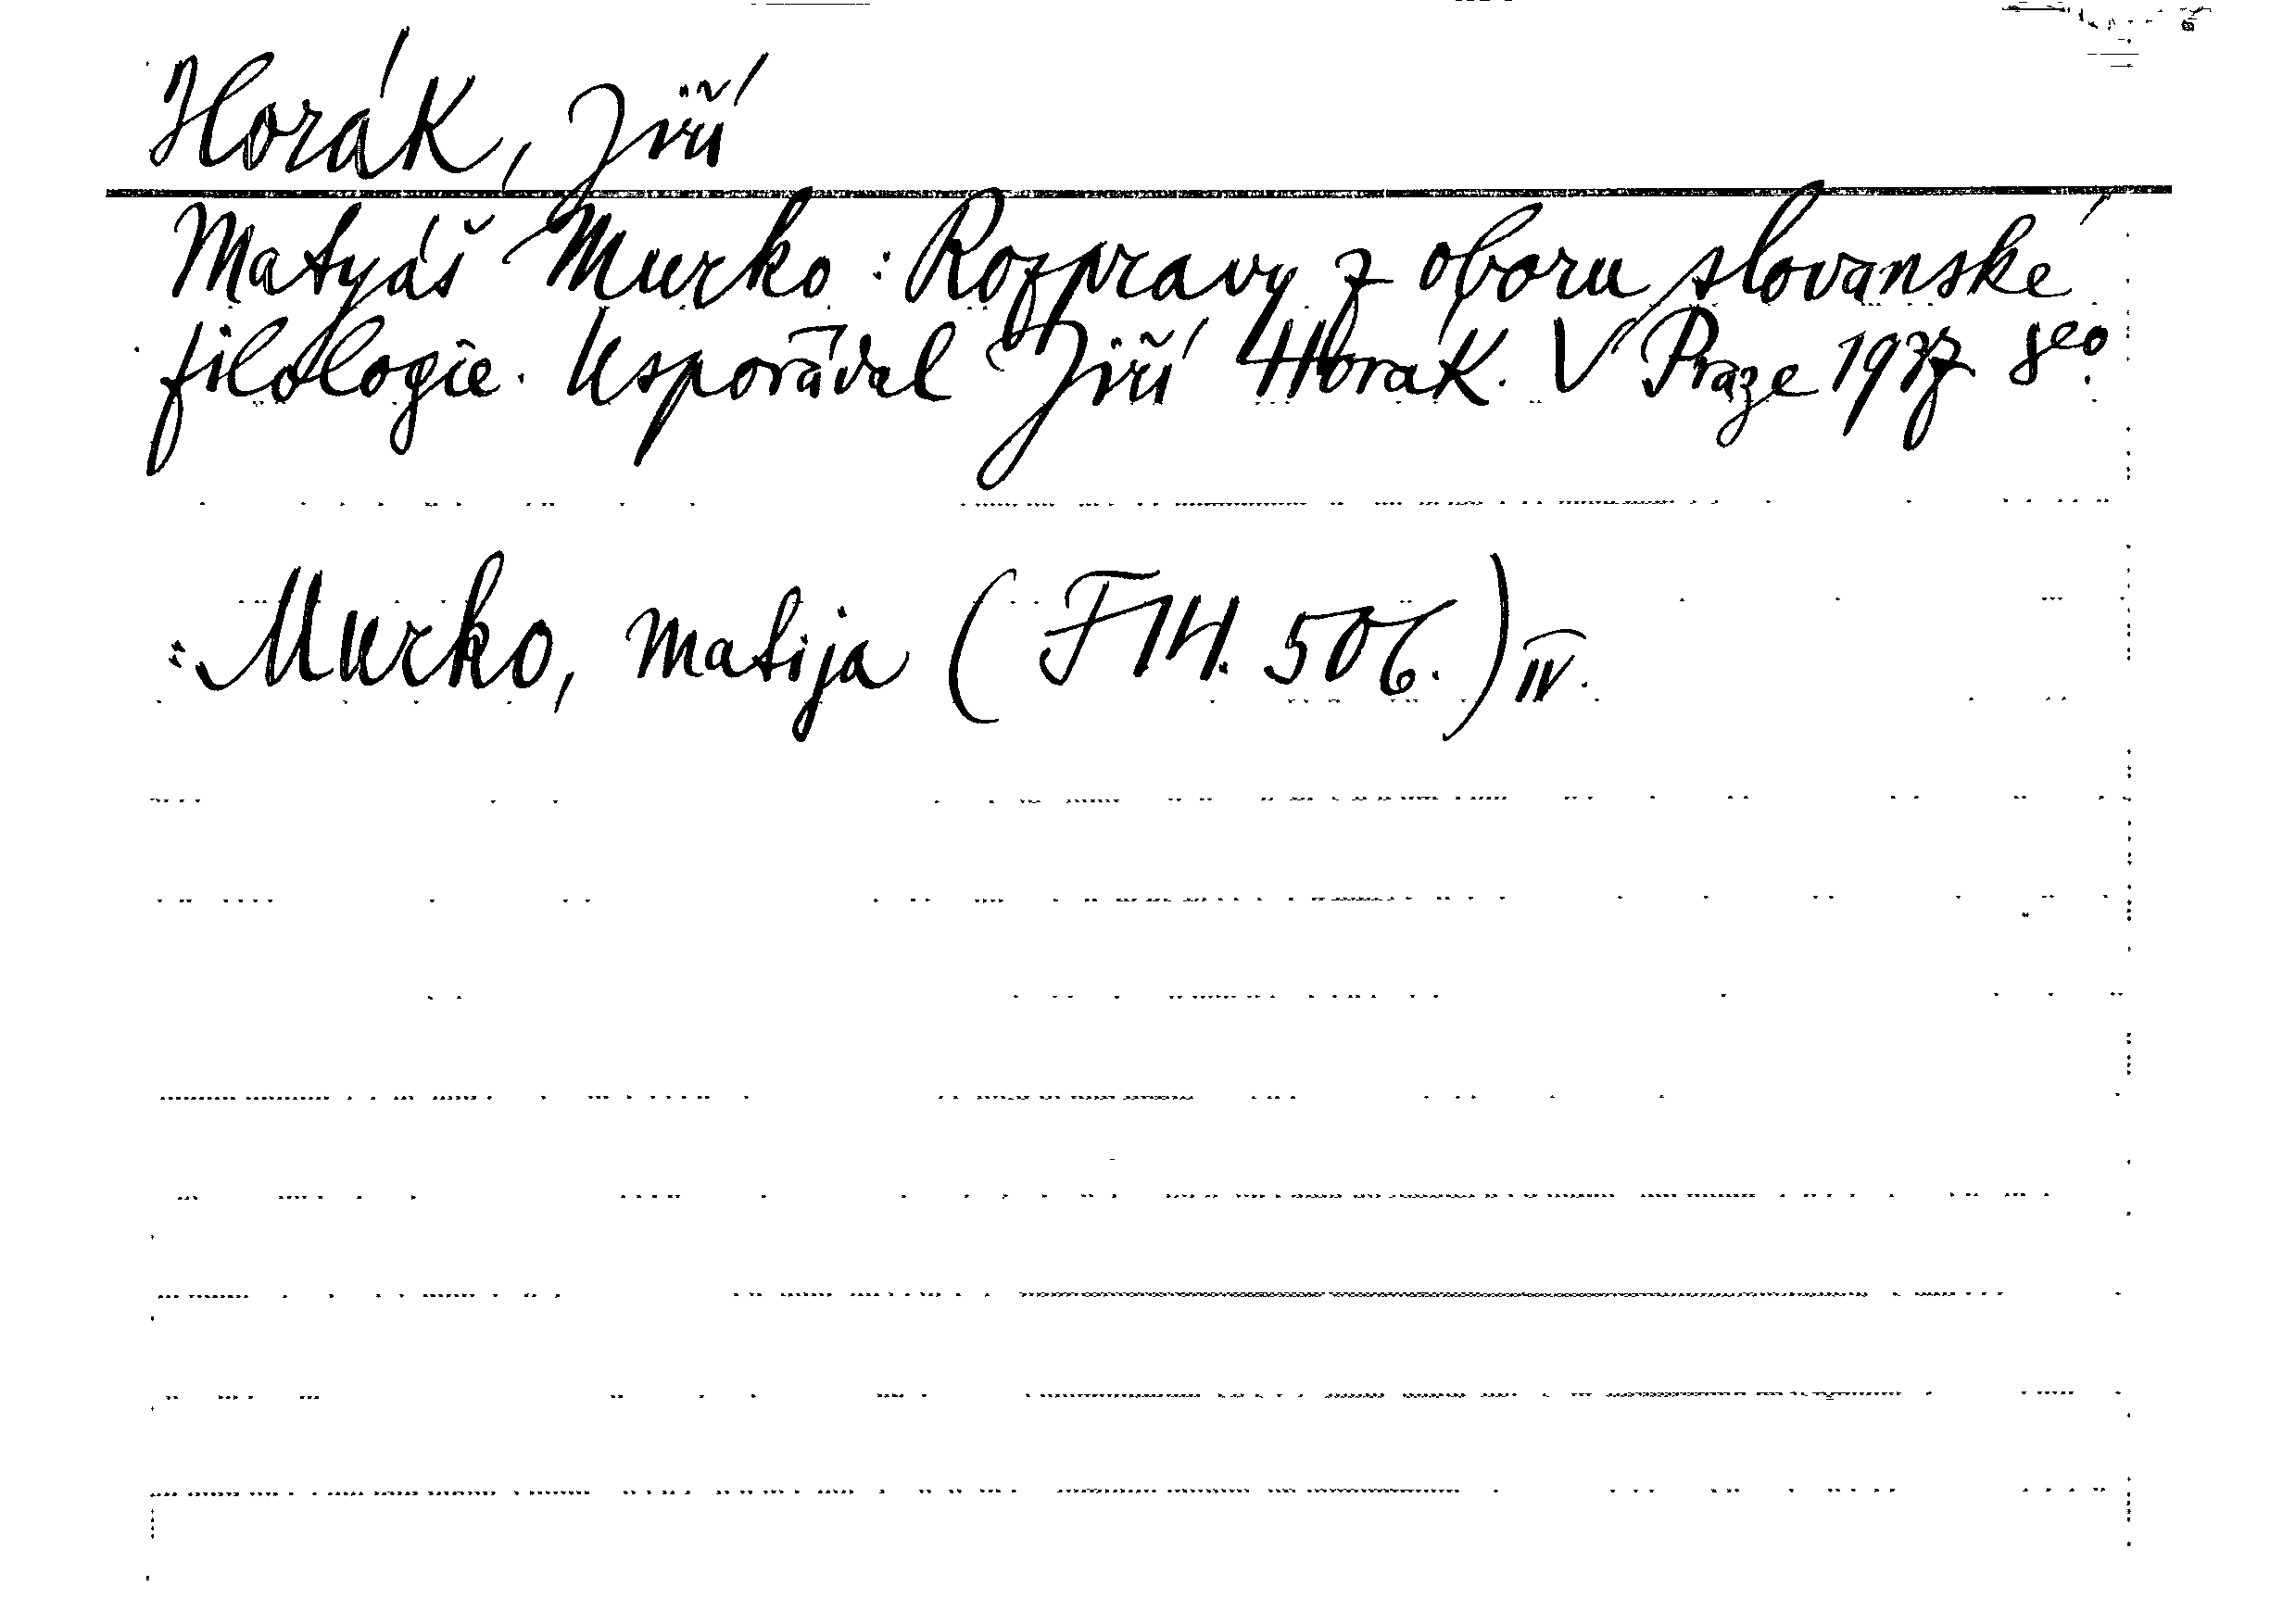 Horák, Jiří
Matyáš Murko : Rozpravy z oboru slovanské
filologie. Usporãdal Jiří Horák. V Praze 1937 8eo.
: Murko, Matija (F14. 506.) IV.